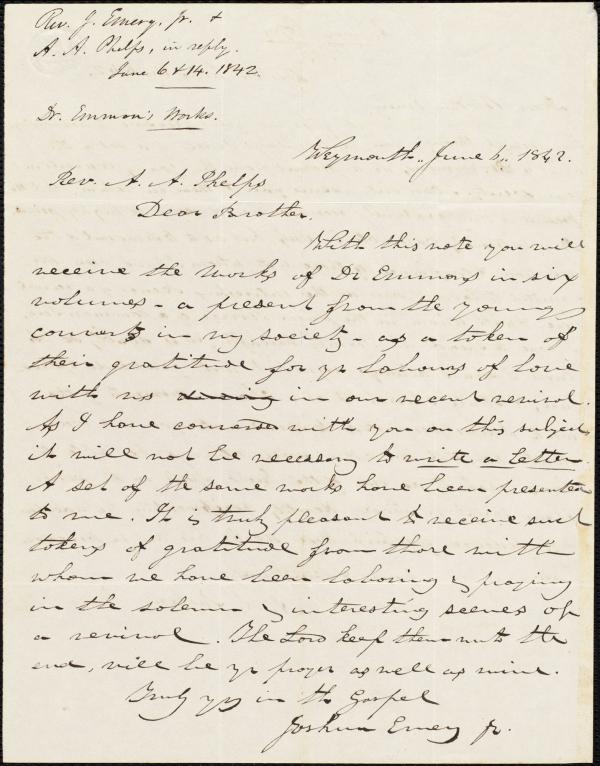 Rev. J. Emery, Jr. &
A. A. Phelps, in reply.
June 6 & 14. 1842.
Dr. Emmon's Works.
Weymouth.. June 6.. 1842.
Rev. A. A. Phelps
Dear Brother.
With this note you will
receive the Works of Dr Emmons in six
volumes - a present from the young
converts in my society - as a token of
their gratitude for yr labours of love
with us during in our recent revival.
As I have conversed with you on this subject
it will not be necessary to write a letter
A set of the same works have been presented
to me. It is truly pleasant to receive such
tokens of gratitude from those with
whom we have been laboring & praying
in the solemn & interesting scenes of
a revival. The Lord keep them unto the
end, will be yr prayer as well as mine.
Truly yrs in the Gospel
Joshua Emery Jr.